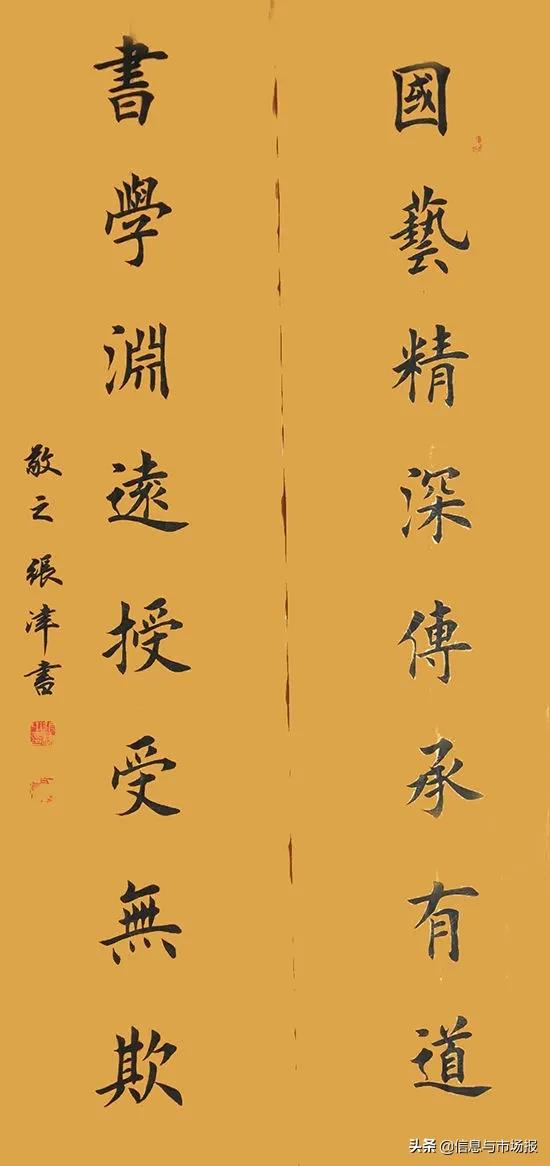 國藝精深傳承有道
書學淵遠授受無欺
敬之張津書
头条 @信息与市场报